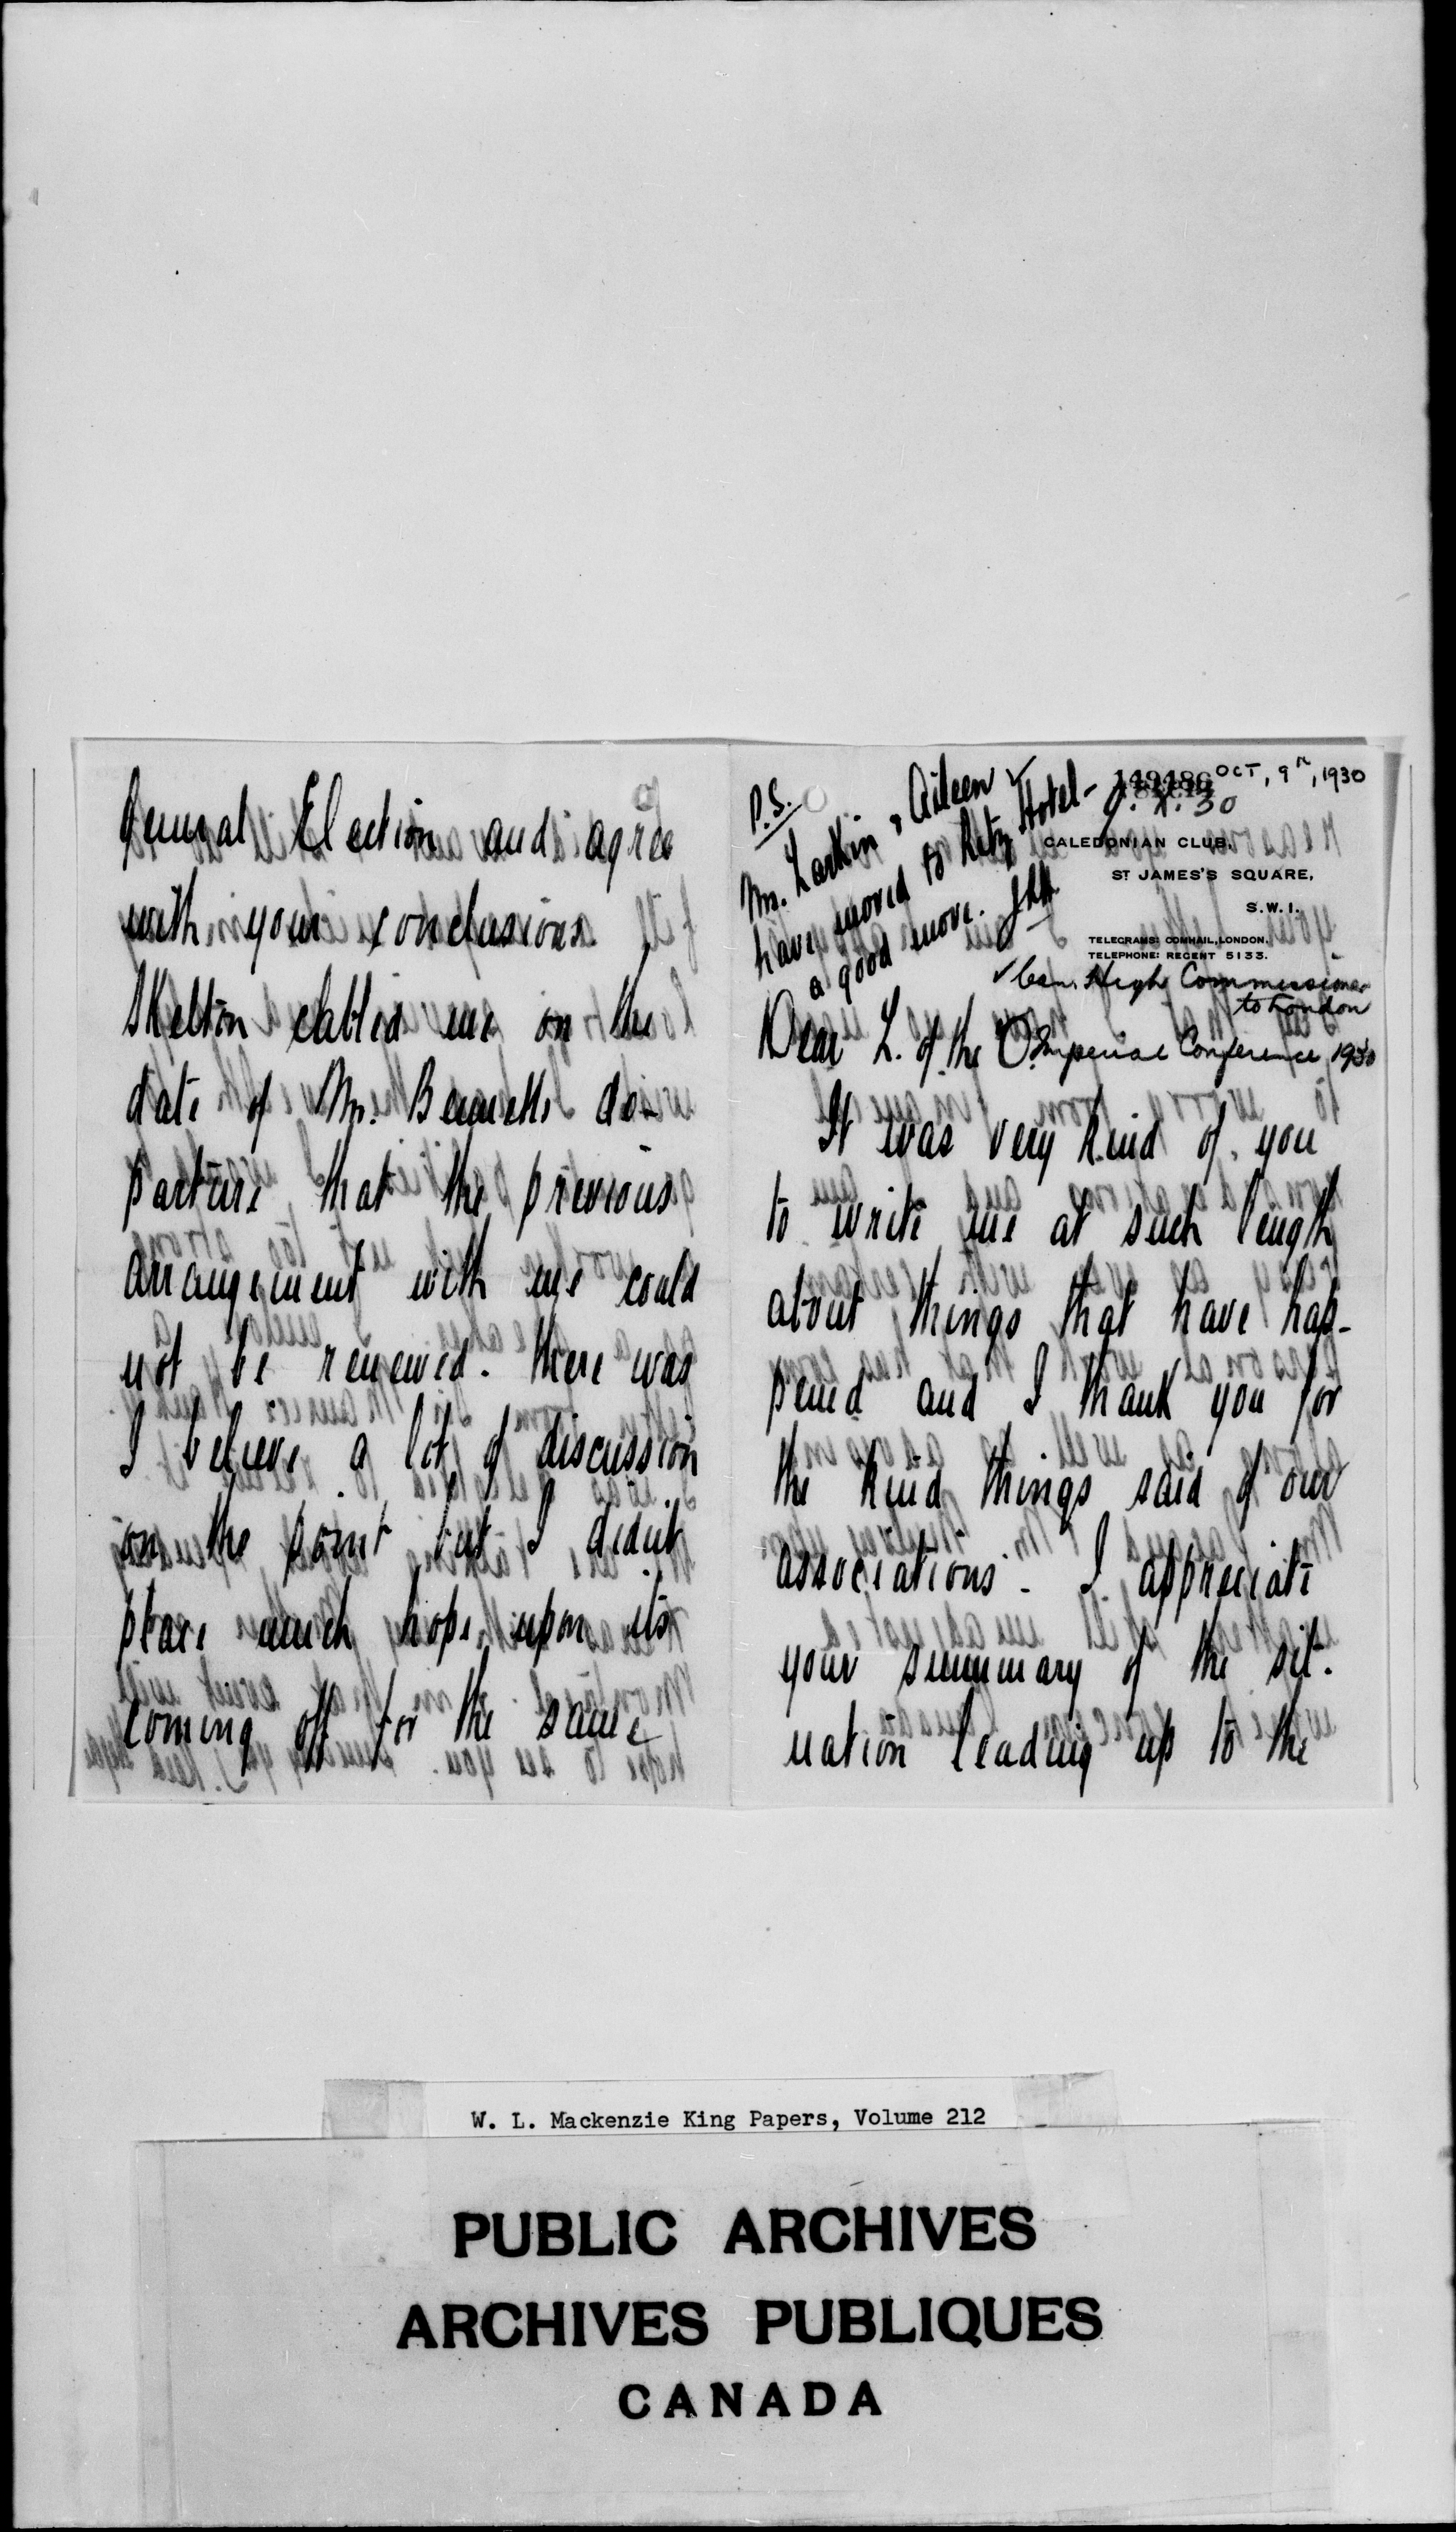 OCT, 9th, 1930
149486
9. X. 30
CALEDONIAN CLUB,
ST JAMES'S SQUARE,
S.W.1.
TELEGRAMS: COMHAIL, LONDON.
TELEPHONE: REGENT 5133.
P.S.
Mrs. Larkin & Aileen ✓
have moved to Ritz Hotel-
a good move.
✓ Can. High Commissioner
to London
Imperial Conference 1930
Dear L. of the O.
It was very kind of you
to write me at such length
about things that have hap-
pened and I thank you for
the kind things said of our
associations. I appreciate
your summary of the sit-
uation leading up to the
General Election and agree
with your conclusions.
Skelton cabled me on the
date of Mr. Bennetts de-
parture that the previous
arrangement with me could
not be renewed. There was
I believe a lot of discussion
on the point but I didnt
place much hope upon its
coming off for the same
W. L. Mackenzie King Papers, Volume 212
PUBLIC ARCHIVES
ARCHIVES PUBLIQUES
CANADA